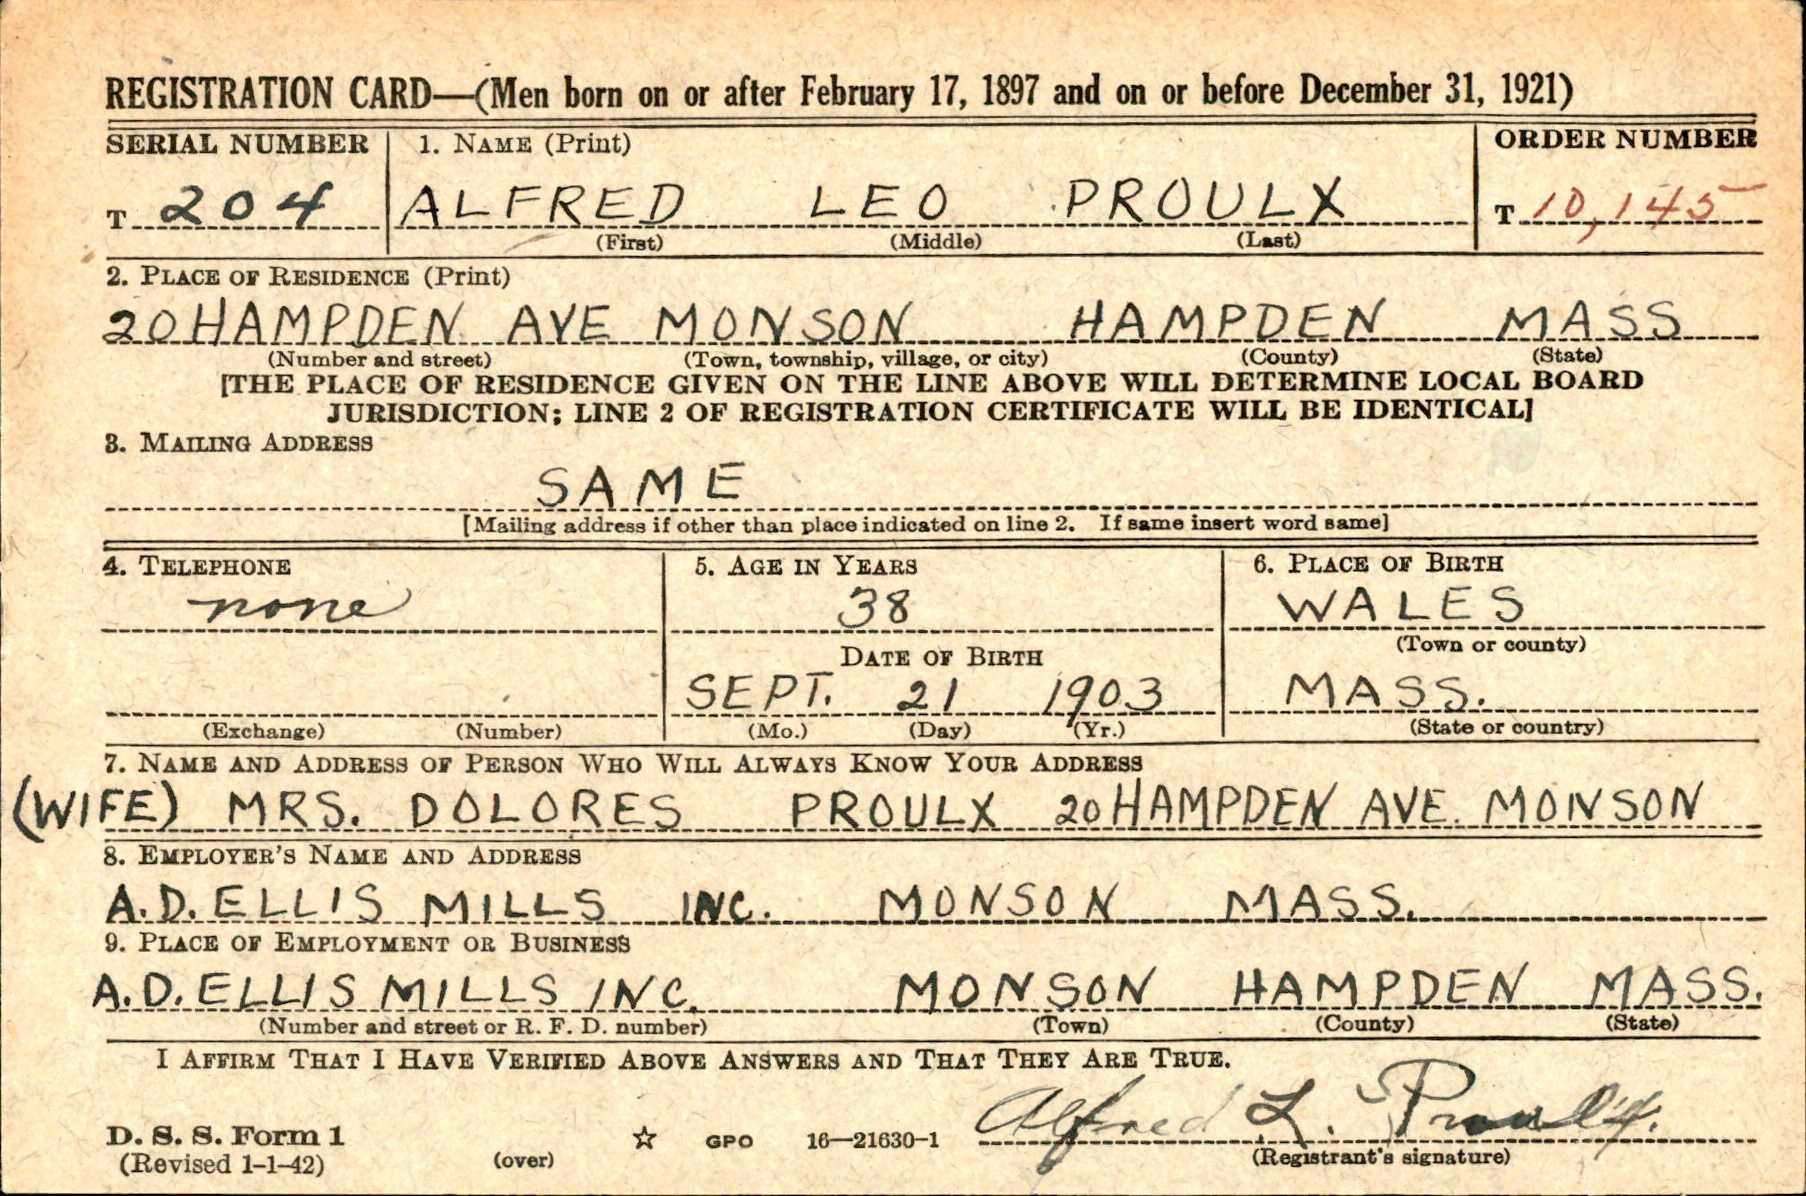 REGISTRATION CARD—(Men born on or after February 17, 1897 and on or before December 31, 1921)
SERIAL NUMBER 1. NAME (Print) ORDER NUMBER
T 204 ALFRED LEO PROULX T 10,145
(First) (Middle) (Last)
2. PLACE OF RESIDENCE (Print)
20 HAMPDEN AVE MONSON HAMPDEN MASS
(Number and street) (Town, township, village, or city) (County) (State)
[THE PLACE OF RESIDENCE GIVEN ON THE LINE ABOVE WILL DETERMINE LOCAL BOARD
JURISDICTION; LINE 2 OF REGISTRATION CERTIFICATE WILL BE IDENTICAL]
3. MAILING ADDRESS
SAME
[Mailing address if other than place indicated on line 2. If same insert word same]
4. TELEPHONE 5. AGE IN YEARS 6. PLACE OF BIRTH
none 38 WALES
(Town or county)
DATE OF BIRTH
SEPT. 21 1903 MASS.
(Exchange) (Number) (Mo.) (Day) (Yr.) (State or country)
7. NAME AND ADDRESS OF PERSON WHO WILL ALWAYS KNOW YOUR ADDRESS
(WIFE) MRS. DOLORES PROULX 20 HAMPDEN AVE. MONSON
8. EMPLOYER'S NAME AND ADDRESS
A.D. ELLIS MILLS INC. MONSON MASS.
9. PLACE OF EMPLOYMENT OR BUSINESS
A.D. ELLIS MILLS INC. MONSON HAMPDEN MASS.
(Number and street or R. F. D. number) (Town) (County) (State)
I AFFIRM THAT I HAVE VERIFIED ABOVE ANSWERS AND THAT THEY ARE TRUE.
Alfred L. Proulx.
D. S. S. Form 1 ☆ GPO 16—21630-1
(Revised 1-1-42) (over) (Registrant's signature)